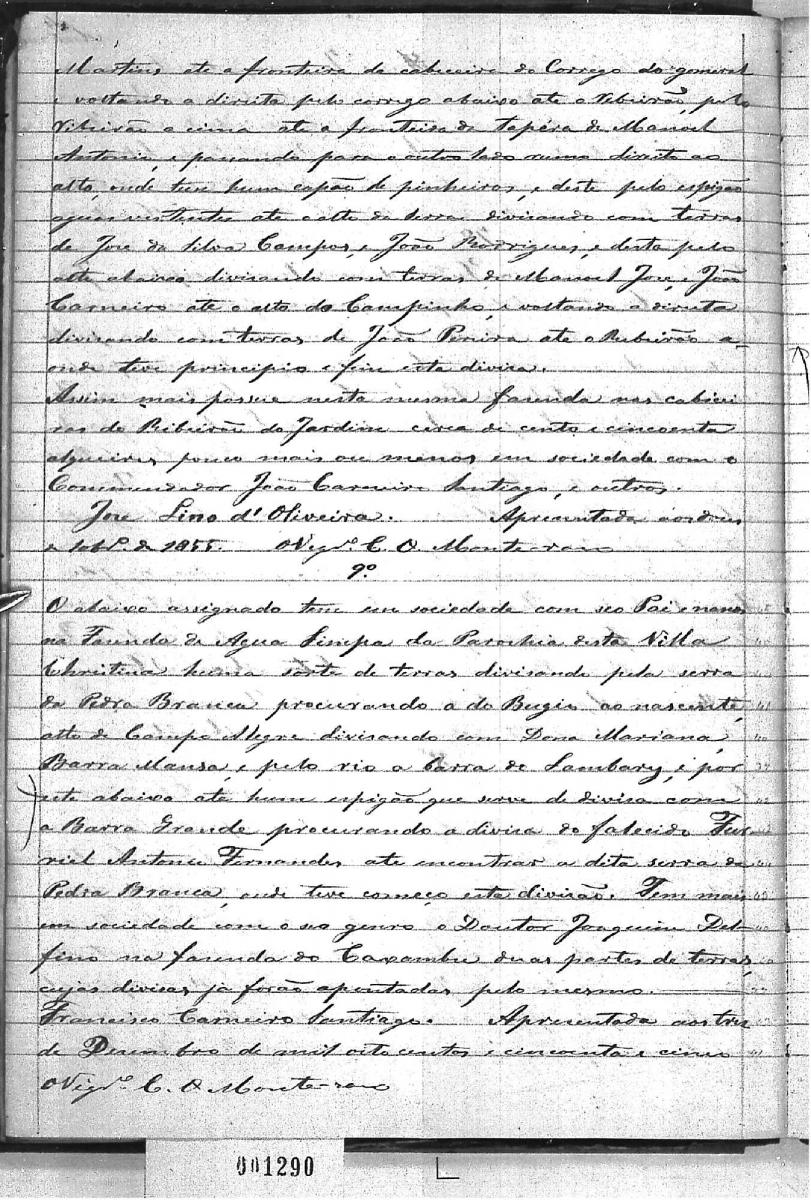 Martins ate a fronteira da cabiceira do Corrego do general
e voltando a direita pelo corrego abaixo ate o Ribeirão, pelo
Ribeirão a cima ate a fronteira da tapéra de Manoel
Antonio, e passando para o outro lado rumo direito ao
alto, onde tem hum capão de pinheiros, e deste pelo espigão
agoas vertentes ate o alto da serra divisando com terras
de Jose da Silva Campos, e João Rodrigues, e desta pelo
alto abaixo divisando com terras de Manoel Jose, e João
Carneiro ate o alto do Campinho, e voltando a direita
divisando com terras de João Pereira ate o Ribeirão a-
onde teve principio e fim esta divisa.
Assim mais possue nesta mesma fazenda nas cabicei
ras do Ribeirão do Jardim cerca de cento e cincoenta
alqueires, pouco mais ou menos em sociedade com o
Commendador João Carneiro Santiago, e outros.
Jose Lino d'Oliveira. Apresentada aos
de 1855. O Vigr.º C. O Monte-raso
9º
O abaixo assignado tem em sociedade com seo Pai e manos
na Fazenda de Agua Limpa da Parochia desta Villa
Christina huma sorte de terras divisando pela serra
da Pedra Branca procurando a do Bugio ao nascente,
alto de Campo Alegre divisando com Dona Mariana,
Barra Mansa, e pelo rio a barra de Lambary, e por
este abaixo até hum espigão que serve de divisa com
a Barra Grande procurando a divisa do falecido Fur
riel Antonio Fernandes ate encontrar a dita serra da
Pedra Branca, onde teve começo esta divisão. Tem mais
em sociedade com o seo genro o Doutor Joaquim Del-
fino na fazenda do Caxambu duas partes de terras,
cujas divisas já forão apontadas pelo mesmo.
Francisco Carneiro Santiago. Apresentada aos tres
de Desembro de mil oito centos e cincoenta e cinco
O Vigr.º C. O Monte-raso
001290